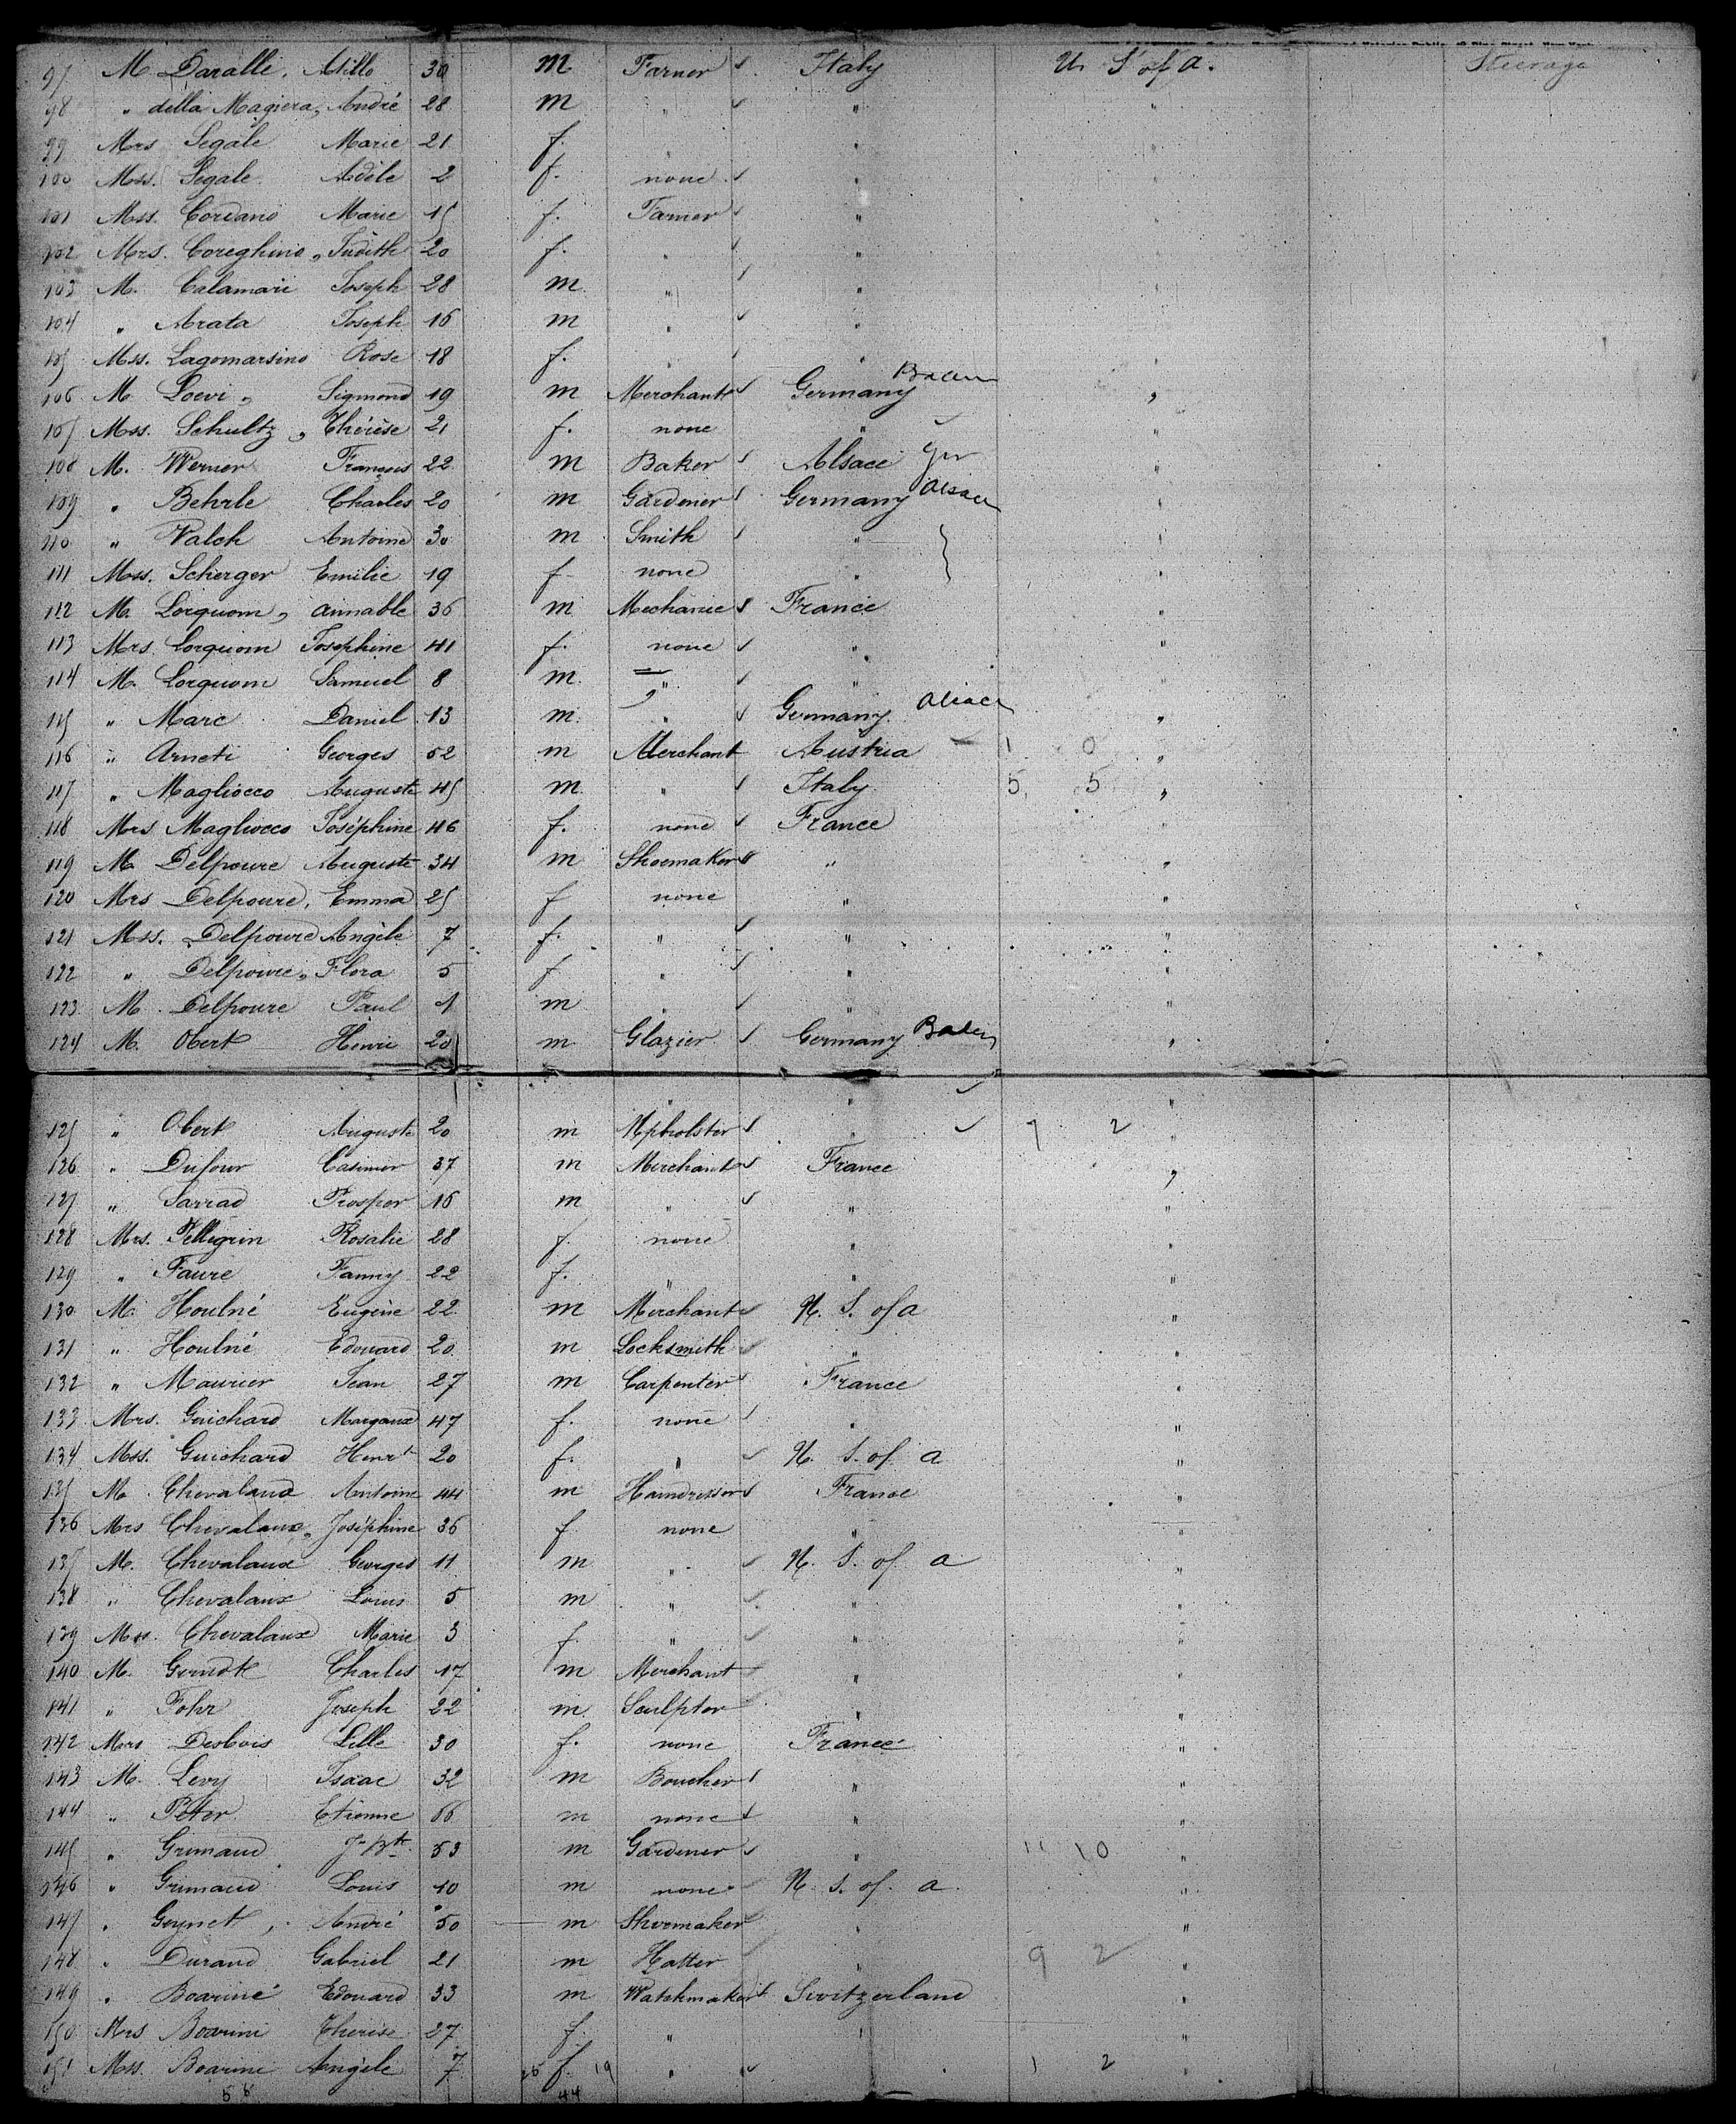 97 M Daralle, Atillo 30 m Farner Italy U. S of a. Steerage
98 " della Magiera, André 28 m " "
99 Mrs Segale Marie 21 f. " "
100 Mss. Segale Adèle 2 f. none "
101 Mss. Cordano Marie 15 f. Farner "
102 Mrs. Coreghino, Judith 20 f. " "
103 M. Calamari Joseph 28 m " "
104 " Arata Joseph 16 m " "
105 Mss. Lagomarsino Rose 18 f. " "
106 M. Loevi, Sigmond 19 m Merchant Germany Baden "
107 Mss. Schultz, Thérèse 21 f. none " "
108 M. Werner François 22 m Baker Alsace Ger "
109 " Behrle Charles 20 m Gardener Germany Alsace "
110 " Walch Antoine 30 m Smith " "
111 Mss. Scherger Emilie 19 f none " "
112 M. Lorquom, aimable 36 m Mechanic France "
113 Mrs. Lorquom Josephine 41 f. none " "
114 M. Lorquom Samuel 8 m. " " "
115 " Marc Daniel 13 m. " Germany. Alsace "
116 " Arneti Georges 52 m Merchant Austria 1 0 "
117 " Magliocco Auguste 45 m " Italy 5 5 "
118 Mrs Magliocco Joséphine 46 f. none France "
119 M. Delpoure Auguste 34 m Shoemaker " "
120 Mrs Delpoure, Emma 25 f none " "
121 Mss. Delpoure Angèle 7 f. " " "
122 " Delpoure, Flora 5 f " " "
123 M. Delpoure Paul 1 m " " "
124 M. Obert Henri 20 m Glazier Germany Baden "
125 " Obert Auguste 20 m Upholster " 7 2 "
126 " Dufour Casimir 37 m Merchant France "
127 " Sarrad Prosper 16 m " " "
128 Mrs. Pellegrin Rosalie 28 f. none " "
129 " Faure Fanny 22 f. " " "
130 M. Houlné Eugène 22 m Merchant U. S. of a "
131 " Houlné Edouard 20 m Locksmith " "
132 " Maurier Jean 27 m Carpenter France "
133 Mrs. Guichard Margaux 47 f. none " "
134 Mss. Guichard Henrt 20 f. " U. S. of a "
135 M. Chevalaux Antoine 44 m Hairdresser France "
136 Mrs Chevalaux, Joséphine 36 f none " "
137 M. Chevalaux Georges 11 m " U. S. of a "
138 " Chevalaux Louis 5 m " " "
139 Mss. Chevalaux Marie 3 f " " "
140 M. Gerndt Charles 17 m Merchant " "
141 " Fohr Joseph 22 m Sculptor " "
142 Mrs Desbois Lille 30 f. none France "
143 M. Levy Isaac 32 m Boucher " "
144 " Peter Etienne 66 m none " "
145 " Grimaud J-Bte 53 m Gardener " 11 10 "
146 " Grimaud Louis 10 m none U. S. of. a. "
147 " Geynet, André 50 m Shoemaker " "
148 " Durand Gabriel 21 m Hatter " 9 2 "
149 " Boariné Edouard 33 m Watchmaker Switzerland "
150 Mrs Boarini Thérèse 27 f. " " "
151 Mss. Boarine Angèle 7 25 f. 19 " 1 2 "
58 44